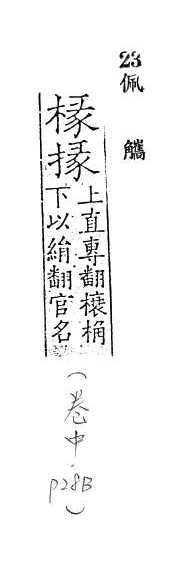 23
佩觿
椽掾
上直專翻榱桷
下以絹翻官名
(卷中
P28B)